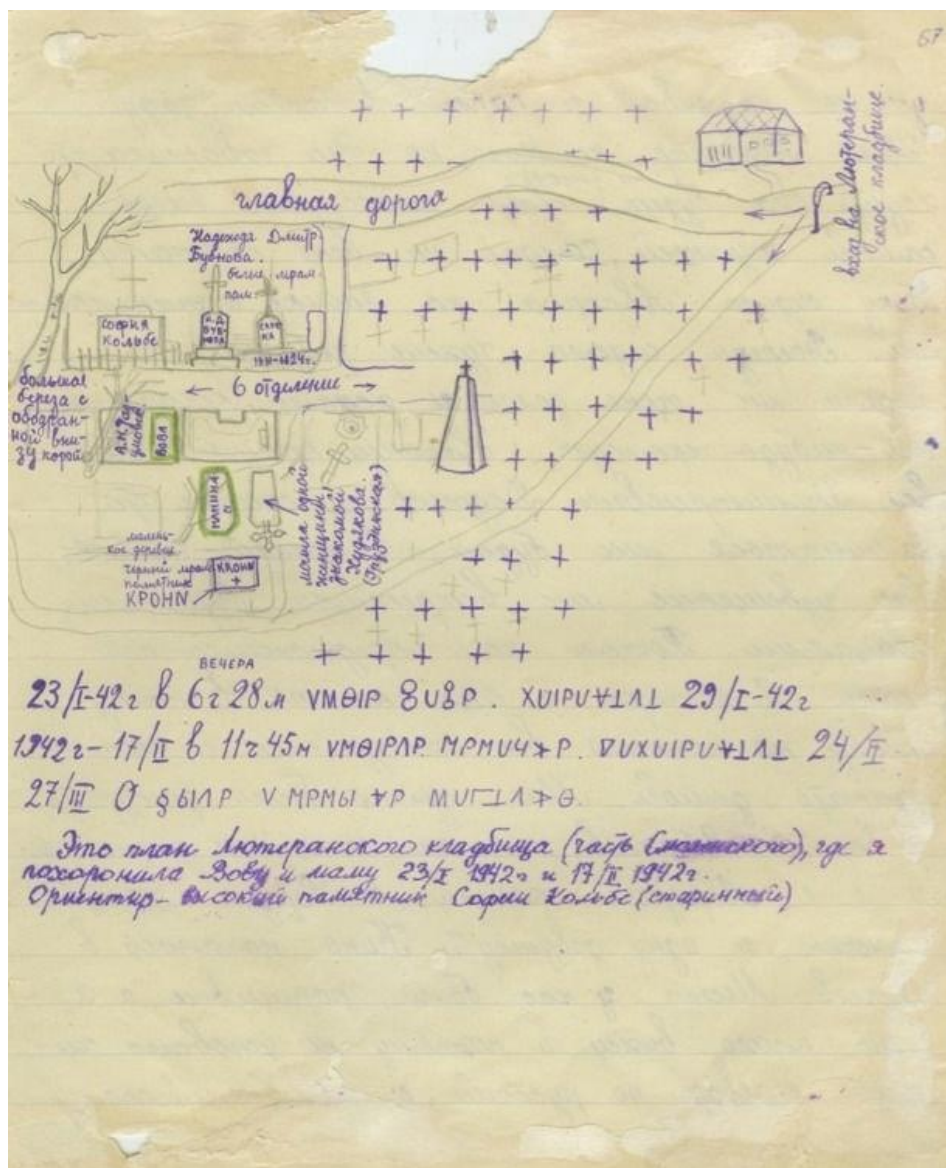 67
вход на Лютеран-
ское кладбище.
главная дорога
Надежда Дмитр.
Бубнова.
белые мрам
пам.
СОФИЯ
КОЛЬБЕ
Н.Д.
БУБ-
НОВА
← 6 отделение →
большая
береза с
ободран-
ной вни-
зу корой
ВОВА
МАМИНА
могила одной
женщины,
знакомой
Худякова.
малень-
кое деревце
черный мрам
памятник
КРОНN
КРОНN
+
ВЕЧЕРА
23/I-42г в 6г 28м VMΘIP 8U8P. XUIPU∀⊥Λ⊥ 29/I-42г
1942г- 17/II в 11г 45м VMΘIPΛP MPMUЧ⚹P. ∇UXUIPU∀⊥Λ⊥ 24/II
27/III О §ЫΛP V MPMЫ ∀P MUГ⊥Λ⚹Θ.
Это план Лютеранского кладбища (часть Смоленского), где я
похоронила Вову и маму 23/I 1942г и 17/II 1942г.
Ориентир- высокий памятник Софии Кольбе (старинный)